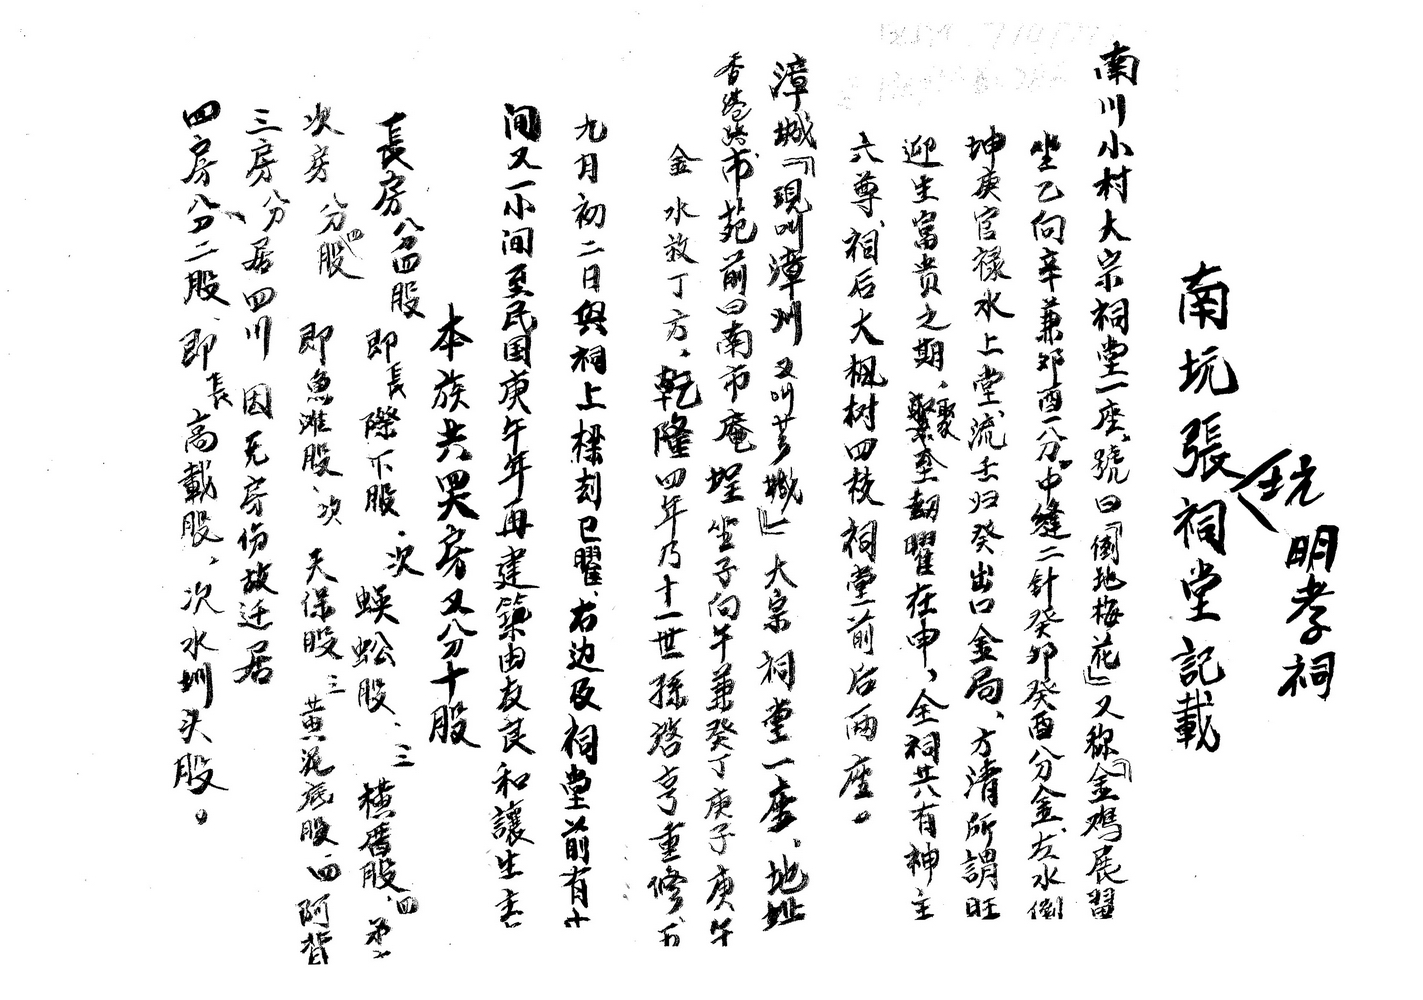 南坑張祠堂記載
坑明孝祠
南川小村大宗祠堂一座、號曰『倒地梅花』又称『金鸡展翅
坐乙向辛兼卯酉一分中縫二針癸卯癸酉分金、左水倒
坤庚官祿水上堂、流去归癸出口金局、方清所謂旺
迎生富贵之期、聚至劫曜在申、全祠共有神主
六尊、祠后大楓树四枝祠堂前后兩座。
漳城『現叫漳州又叫芗城』大宗祠堂一座、地址
香港路市苑前曰南市庵埕坐子向午兼癸丁庚子庚午
金水放丁方、乾隆四年乃十一世孫啓亨重修、五
九月初二日與祠上樑刻已曜、右边及祠堂前有十
间又一小间至民国庚午年再建築由友良和讓生
本族共四房又分十股
長房分四股 即長際下股、次蜈蚣股、三横厝股、四
次房分四股 即魚潍股、次天保股、三黄泥坑股、四阿背
三房分居四川 因无房份故迁居
四房分二股、即長高載股、次水圳头股。